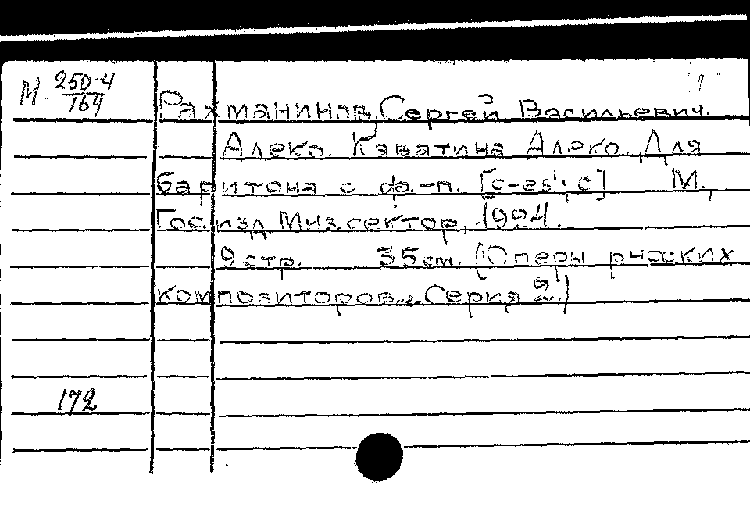 М 250-4
164
Рахманинов, Сергей Васильевич.
Алеко. Каватина Алеко. Для
баритона с ф.-п. [c-es'; c] М.,
Гос. изд. Муз. сектор,
9 стр. 35 см. (Оперы русских
композиторов. Серия 2.)
172